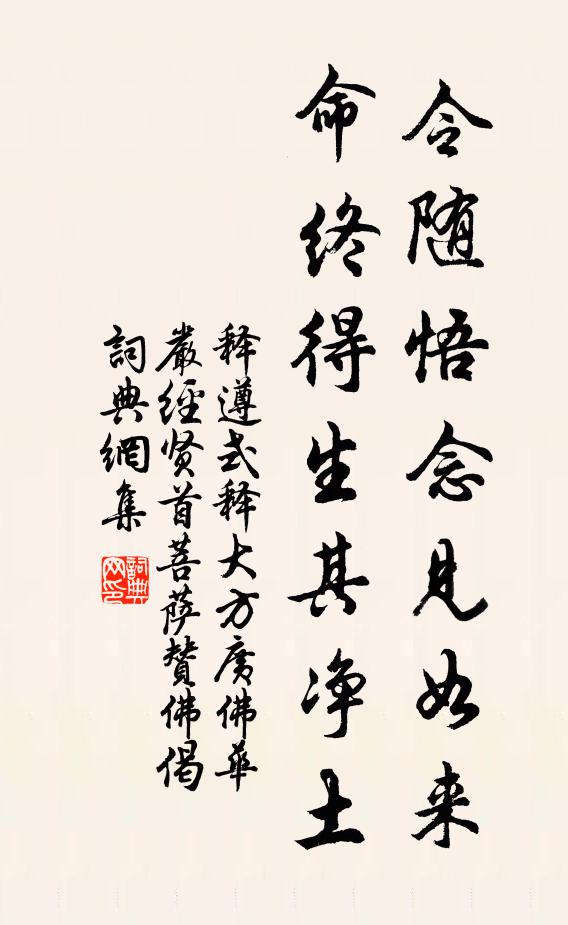 令随悟念见如来
命终得生其净土
释遵式释大方廣佛華
嚴經贤首菩萨赞佛偈
詞典網集
詞典网印